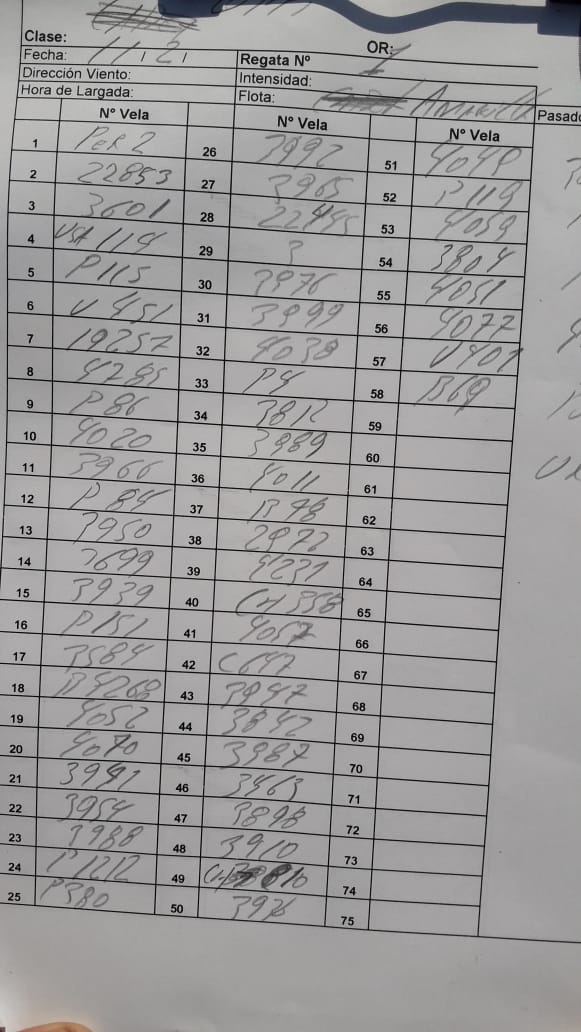 Clase: OR:
Fecha: 11/2/ Regata Nº 1
Dirección Viento: Intensidad:
Hora de Largada: Flota: Amarilla
Nº Vela Nº Vela Nº Vela Pasado
1 PER 2 26 3992 51 4048
2 22853 27 3965 52 P119
3 3601 28 22445 53 4059
4 USA 114 29 3 54 3804
5 P115 30 3976 55 4051
6 U 451 31 3999 56 4077
7 19257 32 4038 57 U401
8 4285 33 P4 58 B69
9 P86 34 3812 59
10 4020 35 3989 60
11 3966 36 4011 61
12 P 84 37 B 48 62
13 3950 38 2972 63
14 3699 39 4231 64
15 3939 40 CH 358 65
16 P151 41 4057 66
17 3584 42 C647 67
18 B4268 43 3947 68
19 4052 44 3842 69
20 4070 45 3987 70
21 3991 46 3463 71
22 3954 47 3898 72
23 3988 48 3910 73
24 P1212 49 74
25 P380 50 3926 75